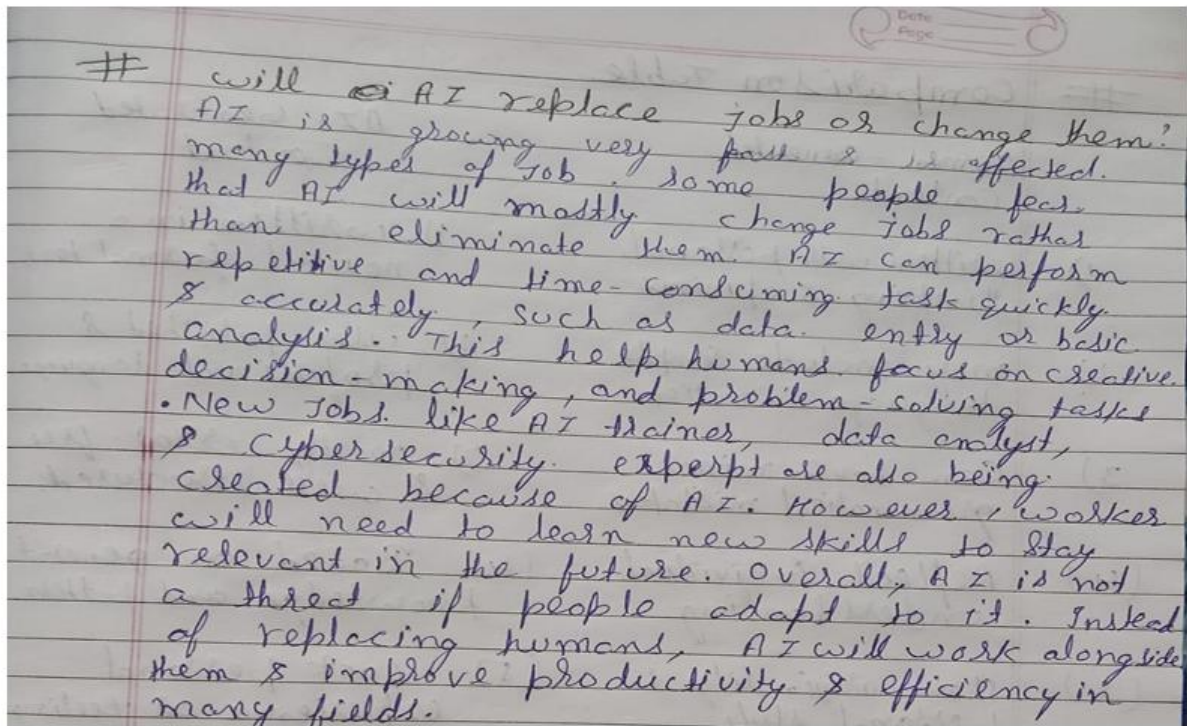 Date
Page
# will AI replace jobs or change them?
AI is growing very fast & is affected.
many types of Job. some people fear
that AI will mostly change jobs rathar
than eliminate them. AI can perform
repetitive and time-consuming task quickly
& accurately, such as data entry or basic
analysis. This help humans focus on creative
decision-making, and problem-solving tasks
. New Jobs. like AI trainer, data analyst,
& cybersecurity experpt are also being
created because of AI. However, worker
will need to learn new skills to stay
relevant in the future. Overall, AI is not
a threat if people adapt to it. Instead
of replacing humans, AI will work alongside
them & improve productivity & efficiency in
many fields.